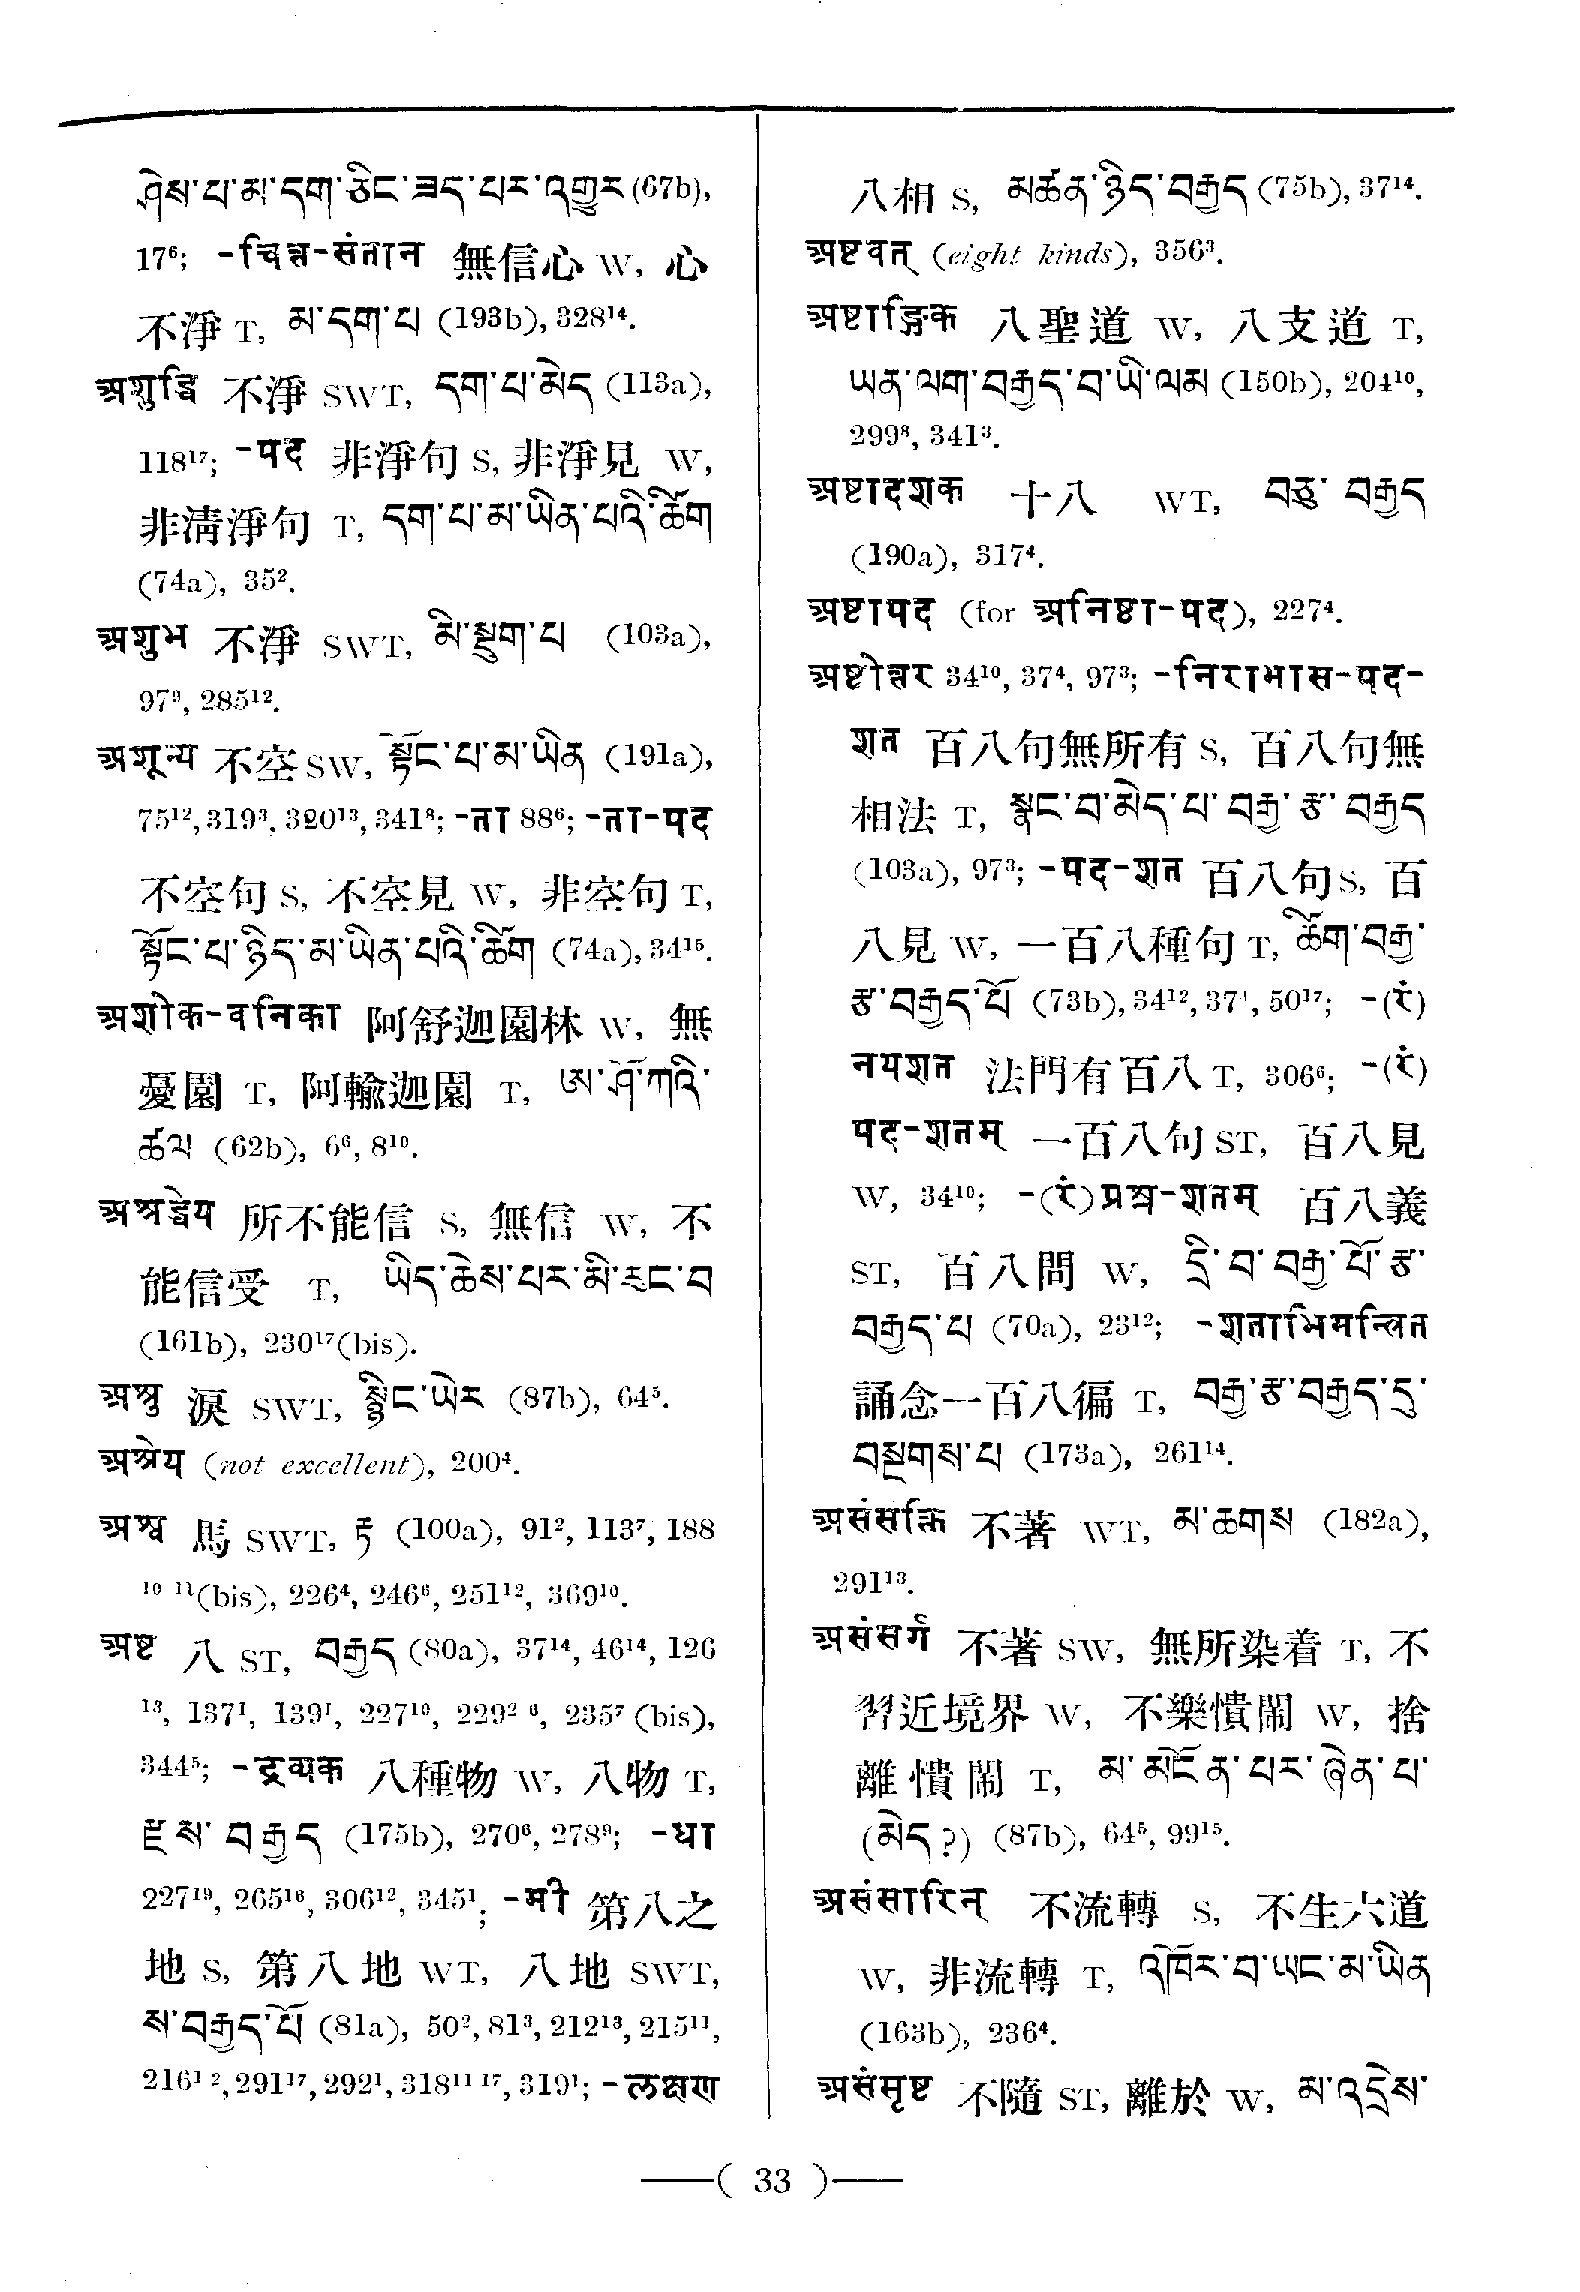 ཤེས་པ་མ་དག་ཅིང་ཟད་པར་འགྱུར (67b),
17⁶; -चित्त-संतान 無信心 W, 心
不淨 T, མ་དག་པ (193b), 328¹⁴.
अशुद्धि 不淨 SWT, དག་པ་མེད (113a),
118¹⁷; -पद 非淨句 S, 非淨見 W,
非淸淨句 T, དག་པ་མ་ཡིན་པའི་ཚིག
(74a), 35².
अशुभ 不淨 SWT, མི་སྡུག་པ (103a),
97⁹, 285¹².
अशून्य 不空 SW, སྟོང་པ་མ་ཡིན (191a),
75¹², 319³, 320¹³, 341⁸; -ता 88⁶; -ता-पद
不空句 S, 不空見 W, 非空句 T,
སྟོང་པ་ཉིད་མ་ཡིན་པའི་ཚིག (74a), 34¹⁵.
अशोक-वनिका 阿舒迦園林 W, 無
憂園 T, 阿輸迦園 T, ཨ་ཤོ་ཀའི་
ཚལ (62b), 6⁶, 8¹⁰.
अश्रद्धेय 所不能信 S, 無信 W, 不
能信受 T, ཡིད་ཆེས་པར་མི་རུང་བ
(161b), 230¹⁷(bis).
अश्रु 淚 SWT, (87b), 64⁵.
अश्रेय (not excellent), 200⁴.
अश्व 馬 SWT, རྟ (100a), 91², 113⁷, 188
¹⁰ ¹¹(bis), 226⁴, 246⁶, 251¹², 369¹⁰.
अष्ट 八 ST, བརྒྱད (80a), 37¹⁴, 46¹⁴, 126
¹³, 137¹, 139¹, 227¹⁰, 229² ⁶, 235⁷ (bis),
344⁵; -द्रव्यक 八種物 W, 八物 T,
རྫས་བརྒྱད (175b), 270⁶, 278⁹; -धा
227¹⁹, 265¹⁶, 306¹², 345¹; -मी 第八之
地 S, 第八地 WT, 八地 SWT,
ས་བརྒྱད་པོ (81a), 50², 81³, 212¹³, 215¹¹,
216¹ ², 291¹⁷, 292¹, 318¹¹ ¹⁷, 319¹; -लक्षण
八相 S, མཚན་ཉིད་བརྒྱད (75b), 37¹⁴.
अष्टवत् (eight kinds), 356³.
अष्टाङ्गिक 八聖道 W, 八支道 T,
ཡན་ལག་བརྒྱད་བ་ཡི་ལམ (150b), 204¹⁰,
299⁸, 341³.
अष्टादशक 十八 WT, བཅུ་བརྒྱད
(190a), 317⁴.
अष्टापद (for अनिष्ठा-पद), 227⁴.
अष्टोत्तर 34¹⁰, 37⁴, 97³; -निराभास-पद-
शत 百八句無所有 S, 百八句無
相法 T, སྣང་བ་མེད་པ་བརྒྱ་རྩ་བརྒྱད
(103a), 97³; -पद-शत 百八句 S, 百
八見 W, 一百八種句 T, ཚིག་བརྒྱ་
རྩ་བརྒྱད་པོ (73b), 34¹², 37¹, 50¹⁷; -(रं)
नयशत 法門有百八 T, 306⁶; -(रं)
पद-शतम् 一百八句 ST, 百八見
W, 34¹⁰; -(रं)प्रश्न-शतम् 百八義
ST, 百八問 W, དྲི་བ་བརྒྱ་པོ་རྩ་
བརྒྱད་པ (70a), 23¹²; -शताभिमन्त्रित
誦念一百八徧 T, བརྒྱ་རྩ་བརྒྱད་དུ་
བསྔགས་པ (173a), 261¹⁴.
असंसक्ति 不著 WT, མ་ཆགས (182a),
291¹³.
असंसर्ग 不著 SW, 無所染着 T, 不
習近境界 W, 不樂憒閙 W, 捨
離憒閙 T, མ་མངོན་པར་ཞེན་པ་
(མེད?) (87b), 64⁵, 99¹⁵.
असंसारिन् 不流轉 S, 不生六道
W, 非流轉 T, འཁོར་བ་ཡང་མ་ཡིན
(163b), 236⁴.
असंसृष्ट 不隨 ST, 離於 W, མ་འདྲེས་
—( 33 )—